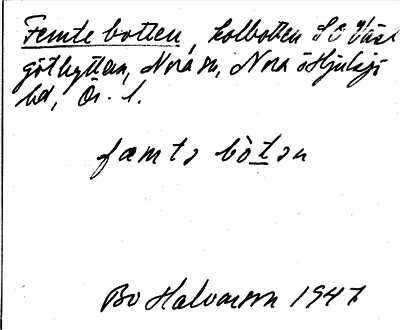 Femte botten, kolbotten SO Väst
göthyttan, Nora sn, Nora o Hjulsjö
bd, Ör. l.
fæmtə bòt̲ən
Bo Halvarson 1947